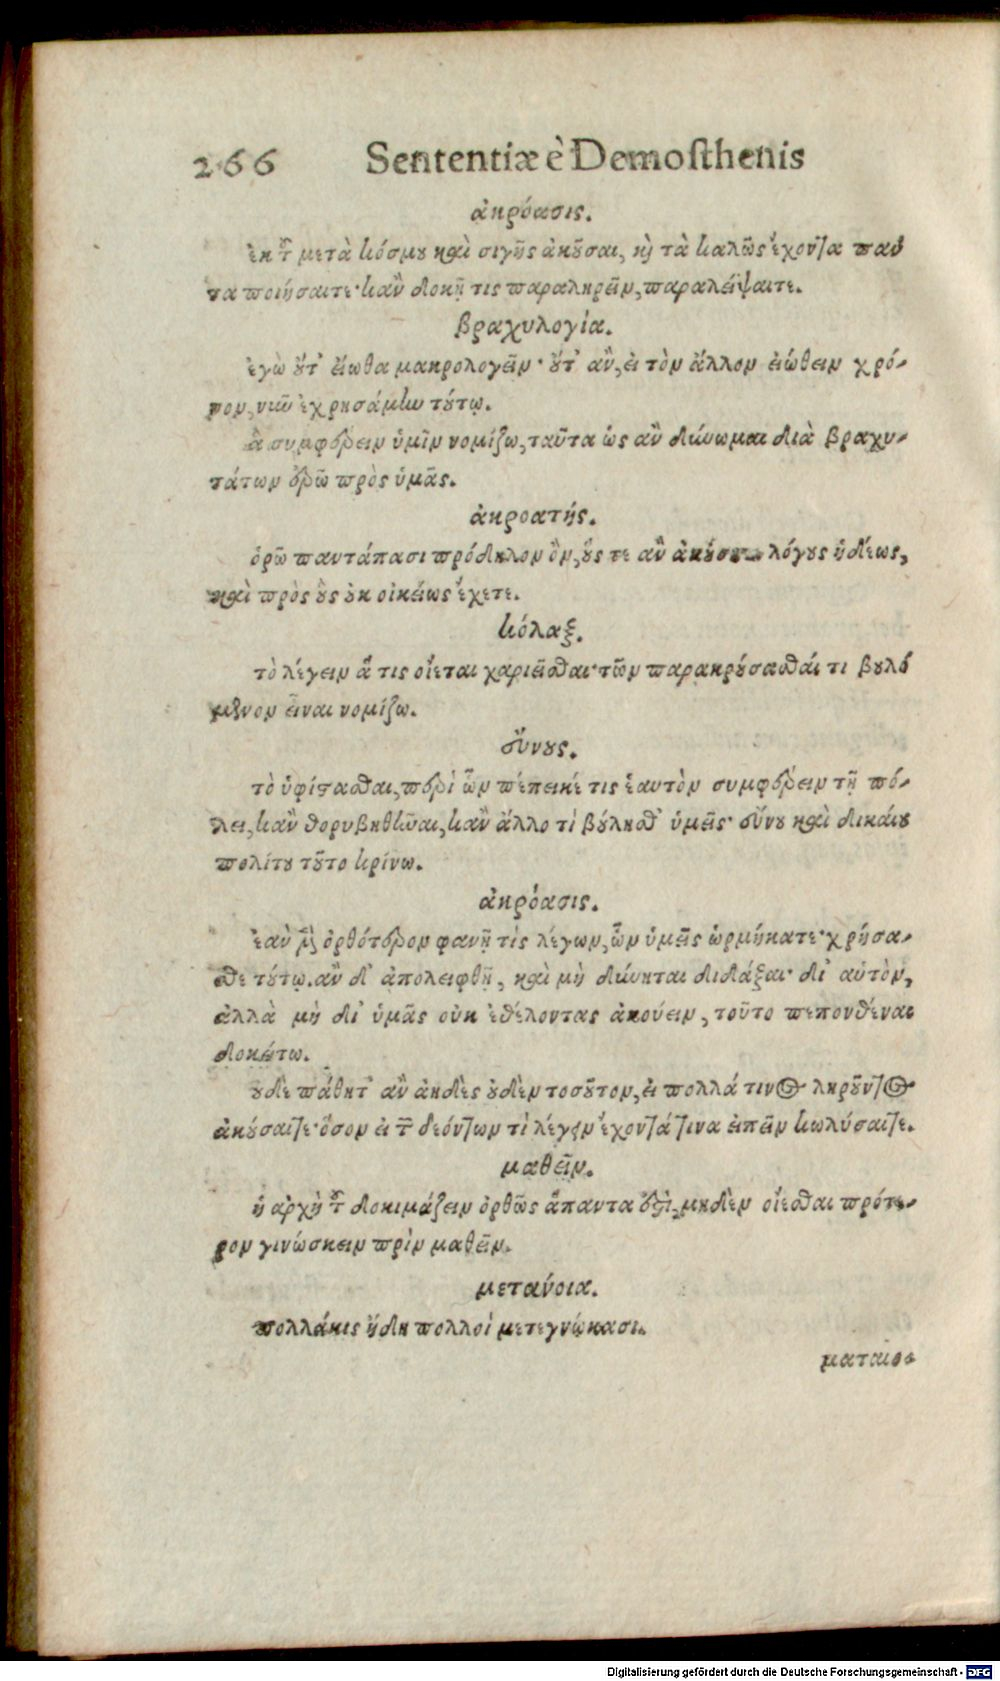 266 Sententiæ è Demosthenis
ἀκρόασις.
ἐκ τοῦ μετὰ κόσμου καὶ σιγῆς ἀκοῦσαι, καὶ τὰ καλῶς ἔχοντα παύ
τα ποιήσαιτε· κἂν δοκῇ τις παραληρεῖν, παραλείψαιτε.
βραχυλογία.
ἐγὼ οὔτ' εἴωθα μακρολογεῖν· οὔτ' ἂν, εἰ τὸν ἄλλον εἰώθειν χρό-
νον, νῦν ἐχρησάμην τούτῳ.
ἃ συμφέρειν ὑμῖν νομίζω, ταῦτα ὡς ἂν δύνωμαι διὰ βραχυ-
τάτων ἐρῶ πρὸς ὑμᾶς.
ἀκροατής.
ὁρῶ παντάπασι πρόδηλον ὂν, οὕς τε ἂν λόγους ἡδέως,
καὶ πρὸς οὓς οὐκ οἰκείως ἔχετε.
κόλαξ.
τὸ λέγειν ἅ τις οἴεται χαριεῖσθαι· τῶν παρακρούσασθαί τι βουλο
μένον εἶναι νομίζω.
εὔνους.
τὸ ὑφίστασθαι, περὶ ὧν πέπεικέ τις ἑαυτὸν συμφέρειν τῇ πό-
λει, κἂν θορυβηθῶναι, κἂν ἄλλο τὶ βούλησθ' ὑμεῖς· εὔνου καὶ δικαίου
πολίτου τοῦτο κρίνω.
ἀκρόασις.
ἐὰν μὲν ὀρθότερον φανῇ τὶς λέγων, ὧν ὑμεῖς ὡρμήκατε· χρήσα-
σθε τούτῳ. ἂν δ' ἀπολειφθῇ, καὶ μὴ δύνηται διδάξαι· δι' αὐτὸν,
ἀλλὰ μὴ δι' ὑμᾶς οὐκ ἐθέλοντας ἀκούειν, τοῦτο πεπονθέναι
δοκείτω.
οὐδὲ πάθητ' ἂν ἀηδὲς οὐδὲν τοσοῦτον, εἰ πολλά τινος ληροῦντος
ἀκούσαιτε· ὅσον εἰ τῶν δεόντων τὶ λέγειν ἔχοντά τινα εἰπεῖν κωλύσαιτε.
μαθεῖν.
ἡ ἀρχὴ τοῦ δοκιμάζειν ὀρθῶς ἅπαντα ἐστὶ, μηδὲν οἴεσθαι πρότε-
ρον γινώσκειν πρὶν μαθεῖν.
μετανόια.
πολλάκις ἤδη πολλοὶ μετεγνώκασι.
ματαιο-
Digitalisierung gefördert durch die Deutsche Forschungsgemeinschaft - DFG